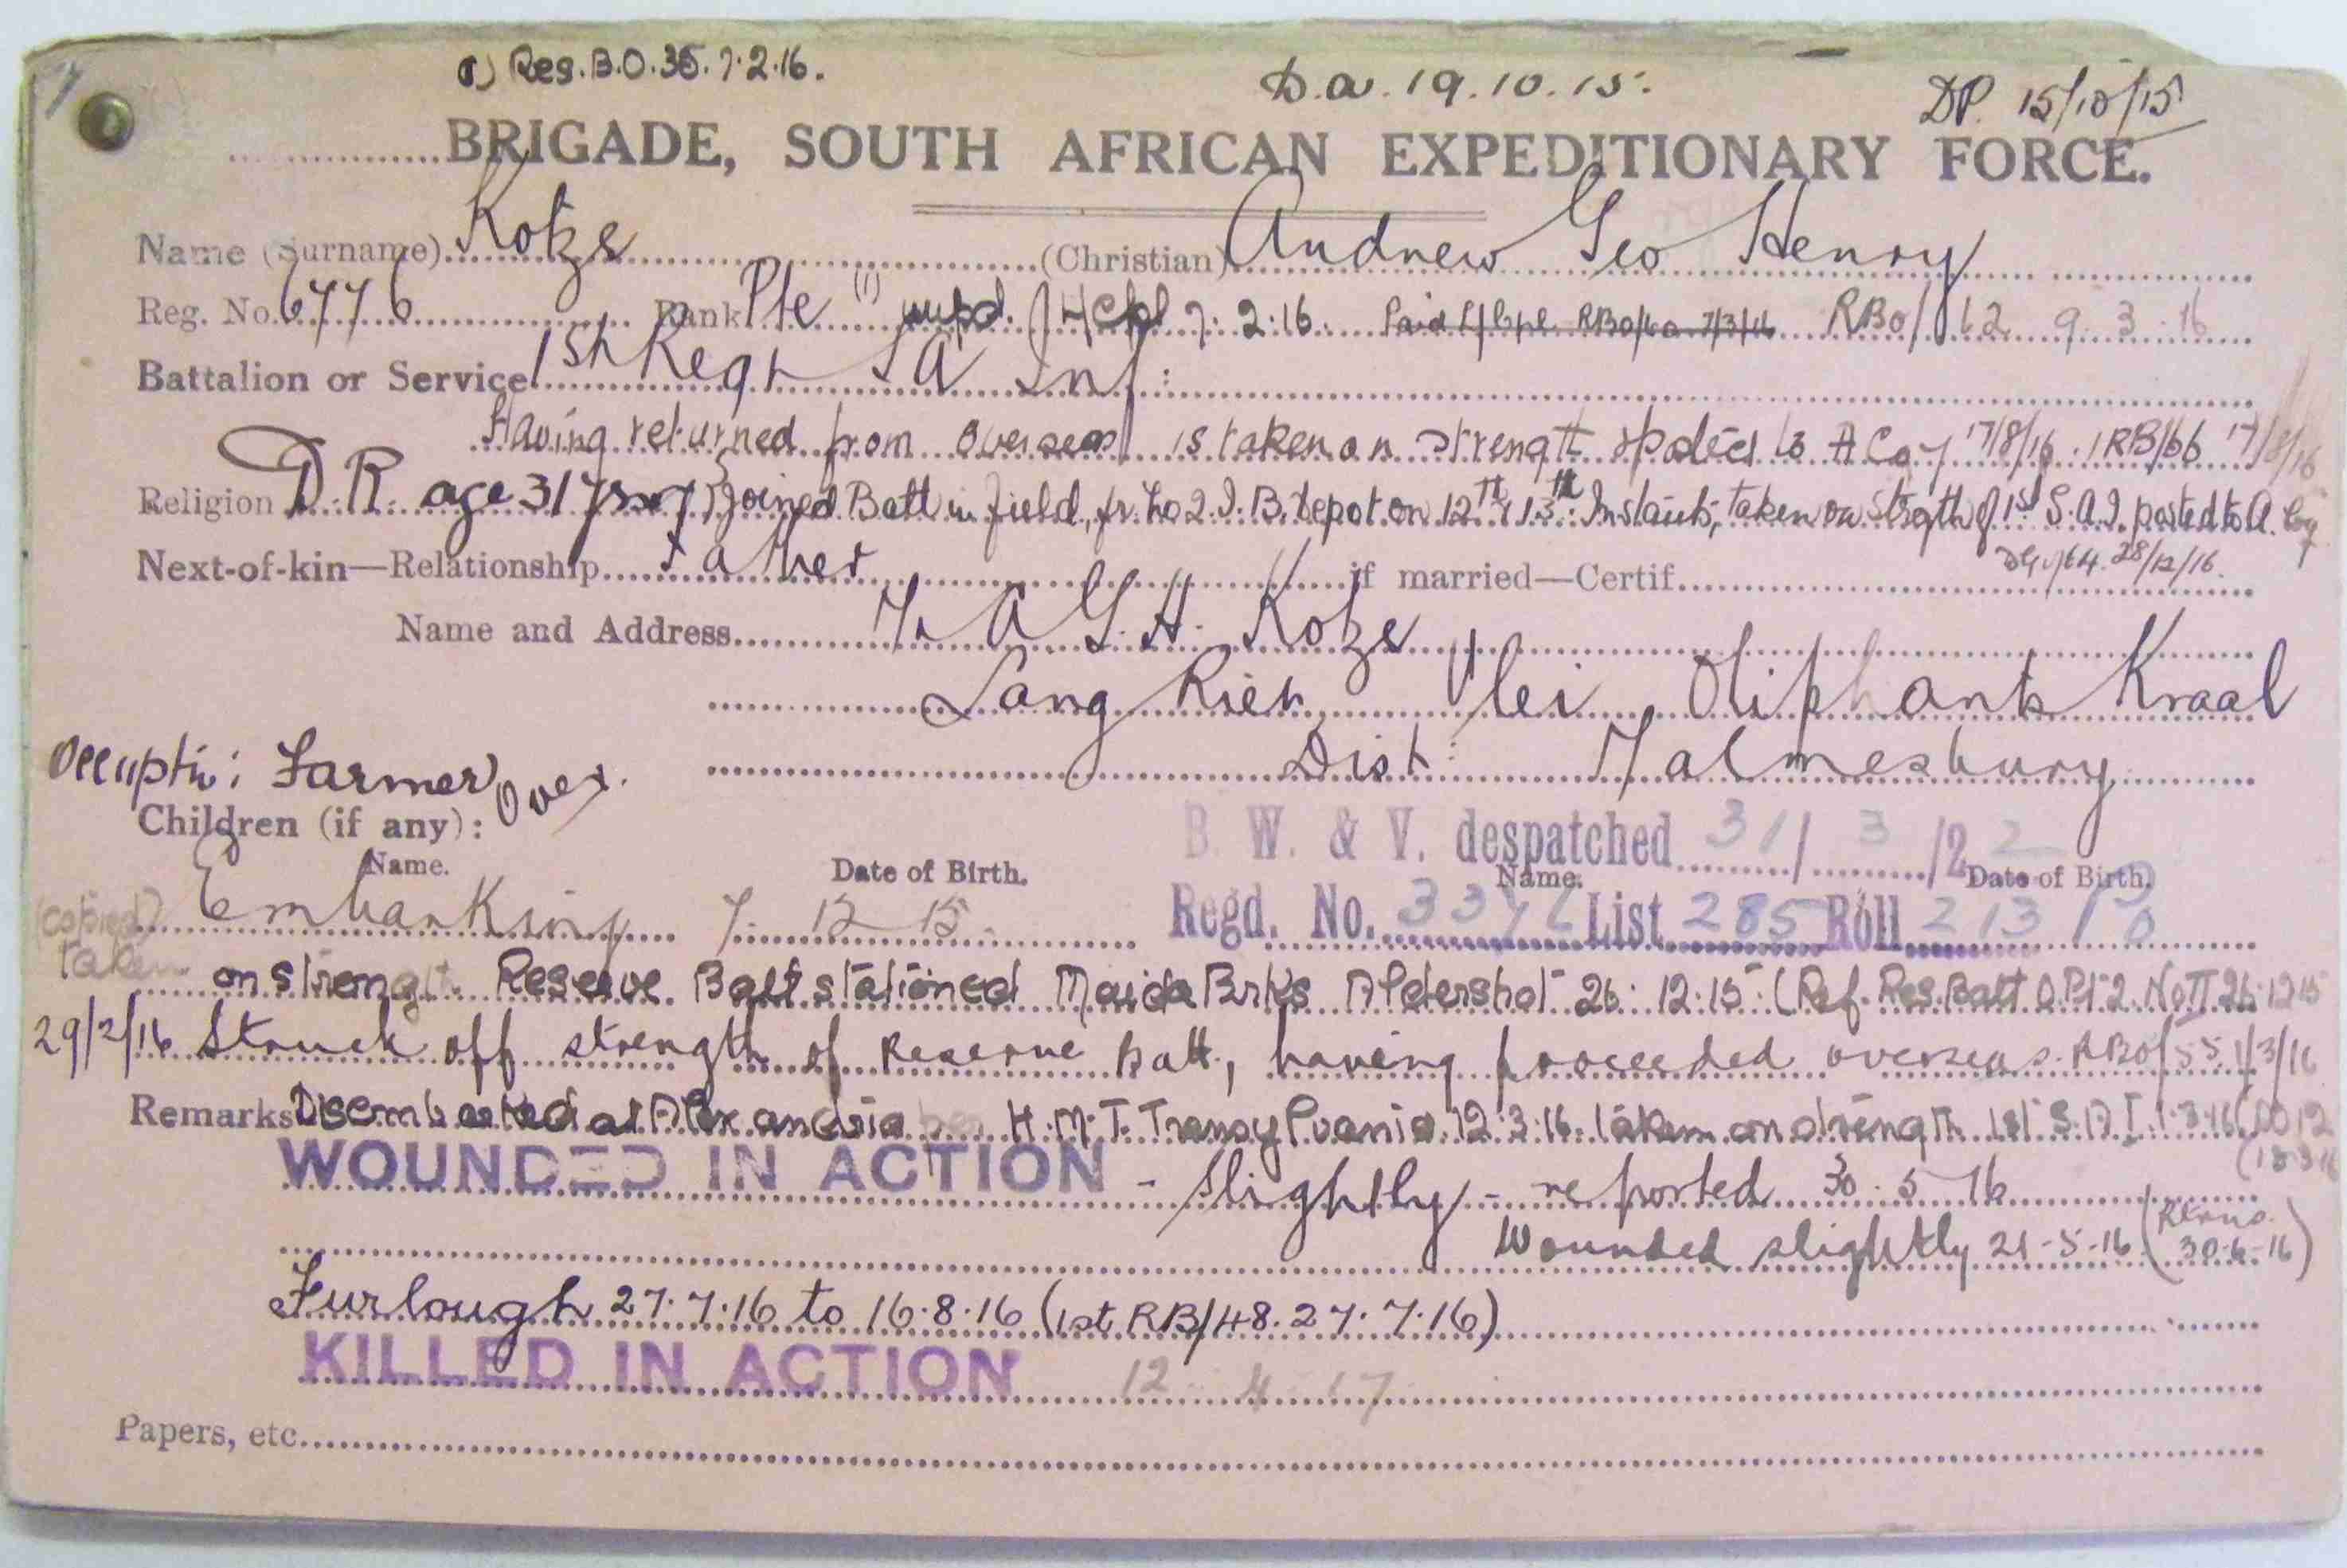 Res. B.O. 35. 7.2.16.
D.a. 19.10.15.
DP. 15/10/15
BRIGADE, SOUTH AFRICAN EXPEDITIONARY FORCE.
Name (Surname) Kotze (Christian) Andrew Geo Henry
Reg. No. 6776 Rank Pte (1) 7.2.16. Paid L/Cpl. 7/3/16 RBO/62 9.3.16
Battalion or Service 1st Regt S A Inf:
Having returned from overseas is taken on strength & posted to A Coy 17/8/16. 1RB/66 17/8/16
Religion D.R. age 31 yrs Joined Batt in field, fr. No 2 I.B. Depot on 12th & 13th Instants, taken on strgth of 1st S.A.I. posted to A. Coy
28/12/16.
Next-of-kin—Relationship Father if married—Certif.
Name and Address Mr A G. H. Kotze
Lang Riet Vlei Oliphants Kraal
Dist: Malmesbury
Occuptn: Farmer Over.
Children (if any):
B. W. & V. despatched 31/3/22
Name. Date of Birth. Name. Date of Birth.
(copied) Embarking 7. 12 15. Regd. No. List 285 Roll 213
Taken on strength Reserve Batt stationed Maida Brks Aldershot 26:12:15: (Ref. Res. Batt O. Pt 2. No II 26.12.15
29/2/16 Struck off strength of Reserve Batt, having proceeded overseas. RBO/55 1/3/16
Remarks Disembarked at Alexandria per H.M.T. Transylvania 12.3.16. taken on strength 1st S.A.I. 1.3.16 (DO12
WOUNDED IN ACTION - slightly - reported 30.5.16
Wounded slightly 21-5-16 (30-6-16)
Furlough 27.7.16 to 16.8.16 (1st RB/48. 27.7.16)
KILLED IN ACTION 12.4.17
Papers, etc.